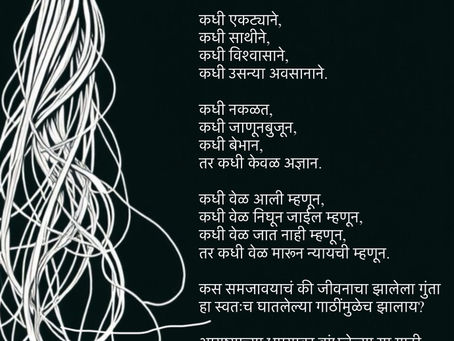 कधी एकट्याने,
कधी साथीने,
कधी विश्वासाने,
कधी उसन्या अवसानाने.
कधी नकळत,
कधी जाणूनबुजून,
कधी बेभान,
तर कधी केवळ अज्ञान.
कधी वेळ आली म्हणून,
कधी वेळ निघून जाईल म्हणून,
कधी वेळ जात नाही म्हणून,
तर कधी वेळ मारून न्यायची म्हणून.
कस समजावयाचं की जीवनाचा झालेला गुंता
हा स्वतःच घातलेल्या गाठींमुळेच झालाय?